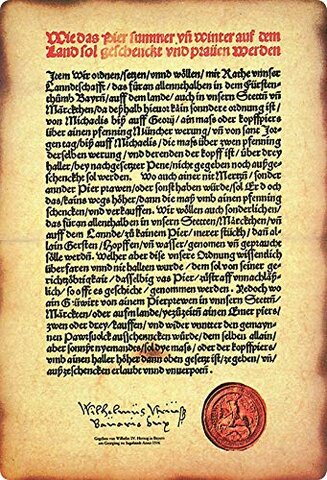 Wie das Pier summer vñ winter auf dem
Land sol geschenckt vnd prauen werden
Item Wir ordnen/setzen/vnnd wöllen/mit Rathe vnnser
Lanndschafft/das für an allenthalben in dem Fürsten-
thůmb Bayrñ/auff dem lande/auch in vnsern Stettñ vñ
Märckten/da deßhalb hieuor kain sonndere ordnung ist/
von Michaelis biß auff Georij/ain mass oder kopffpiers
über ainen pfenning Müncher werung/vñ von sant Jor-
gen tag/biß auff Michaelis/die mass über zwen pfenning
derselben werung/vnd derenden der kopff ist/über drey
haller/bey nachgesetzter Pene/nicht gegeben noch außge-
schenckht sol werden. Wo auch ainer nit Mertzñ/sonder
annder Pier prawen/oder sonst haben würde/sol Er doch
das/kains wegs höher/dann die maß vmb ainen pfenning
schencken/vnd verkauffen. Wir wöllen auch sonderlichen/
das für an allenthalben in vnsern Stetten/Märckthen/vñ
auff dem Lannde/zu kainem Pier/merer stückh/dañ al-
lain Gersten/Hopffen/vñ wasser/genomen vñ gepraucht
sölle werdñ. Welher aber dise vnsere Ordnung wissendlich
überfaren vnnd nie hallten wurde/dem sol von seiner ge-
richtzöbrigkait/dasselbig vas Pier/zůstraff vnnachläß-
lich/so offt es geschicht/genommen werden. Jedoch wo
ain Gůwirt von ainem Pierprewen in vnnsern Stettñ/
Märckten/oder aufm lande/yezůzeitñ ainen Emer piers/
zwen oder drey/kauffen/vnd wider vnnter den gemayn-
nen Pawrsuolck ausschencken würde/dem selben allain/
aber sonnst nyemandes/sol dye mass/oder der kopffpiers/
vmb ainen haller höher dann oben gesetzt ist/ze geben/vñ/
außzeschencken erlaubt vnnd vnuerpotñ.
Gegeben von Wilhelm IV. Herzog in Bayern
am Georgitag zu Ingolstadt Anno 1516